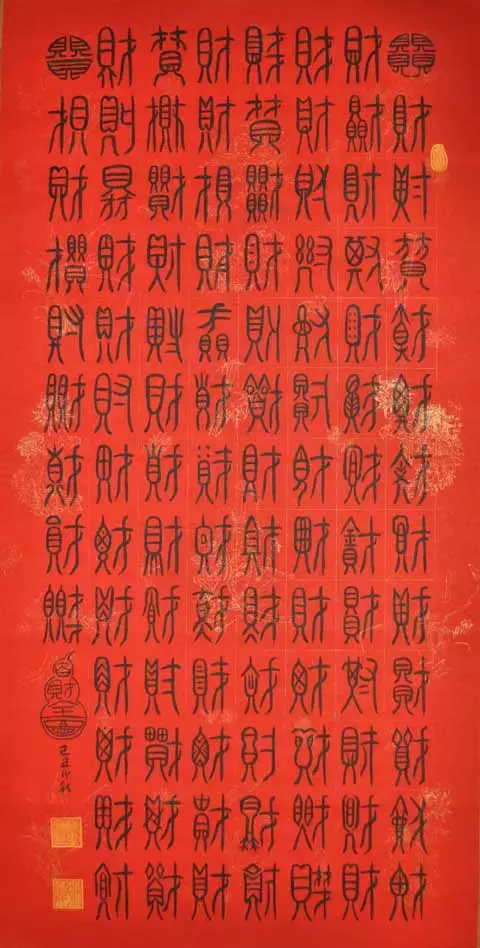 財財財財財財財財財財財財財
財財財財財財財財財財財財財
財財財財財財財財財財財財財
財財財財財財財財財財財財財
財財財財財財財財財財財財財
財財財財財財財財財財財財財
財財財財財財財財財財財財財
財財財財財財財財財
百財
己丑